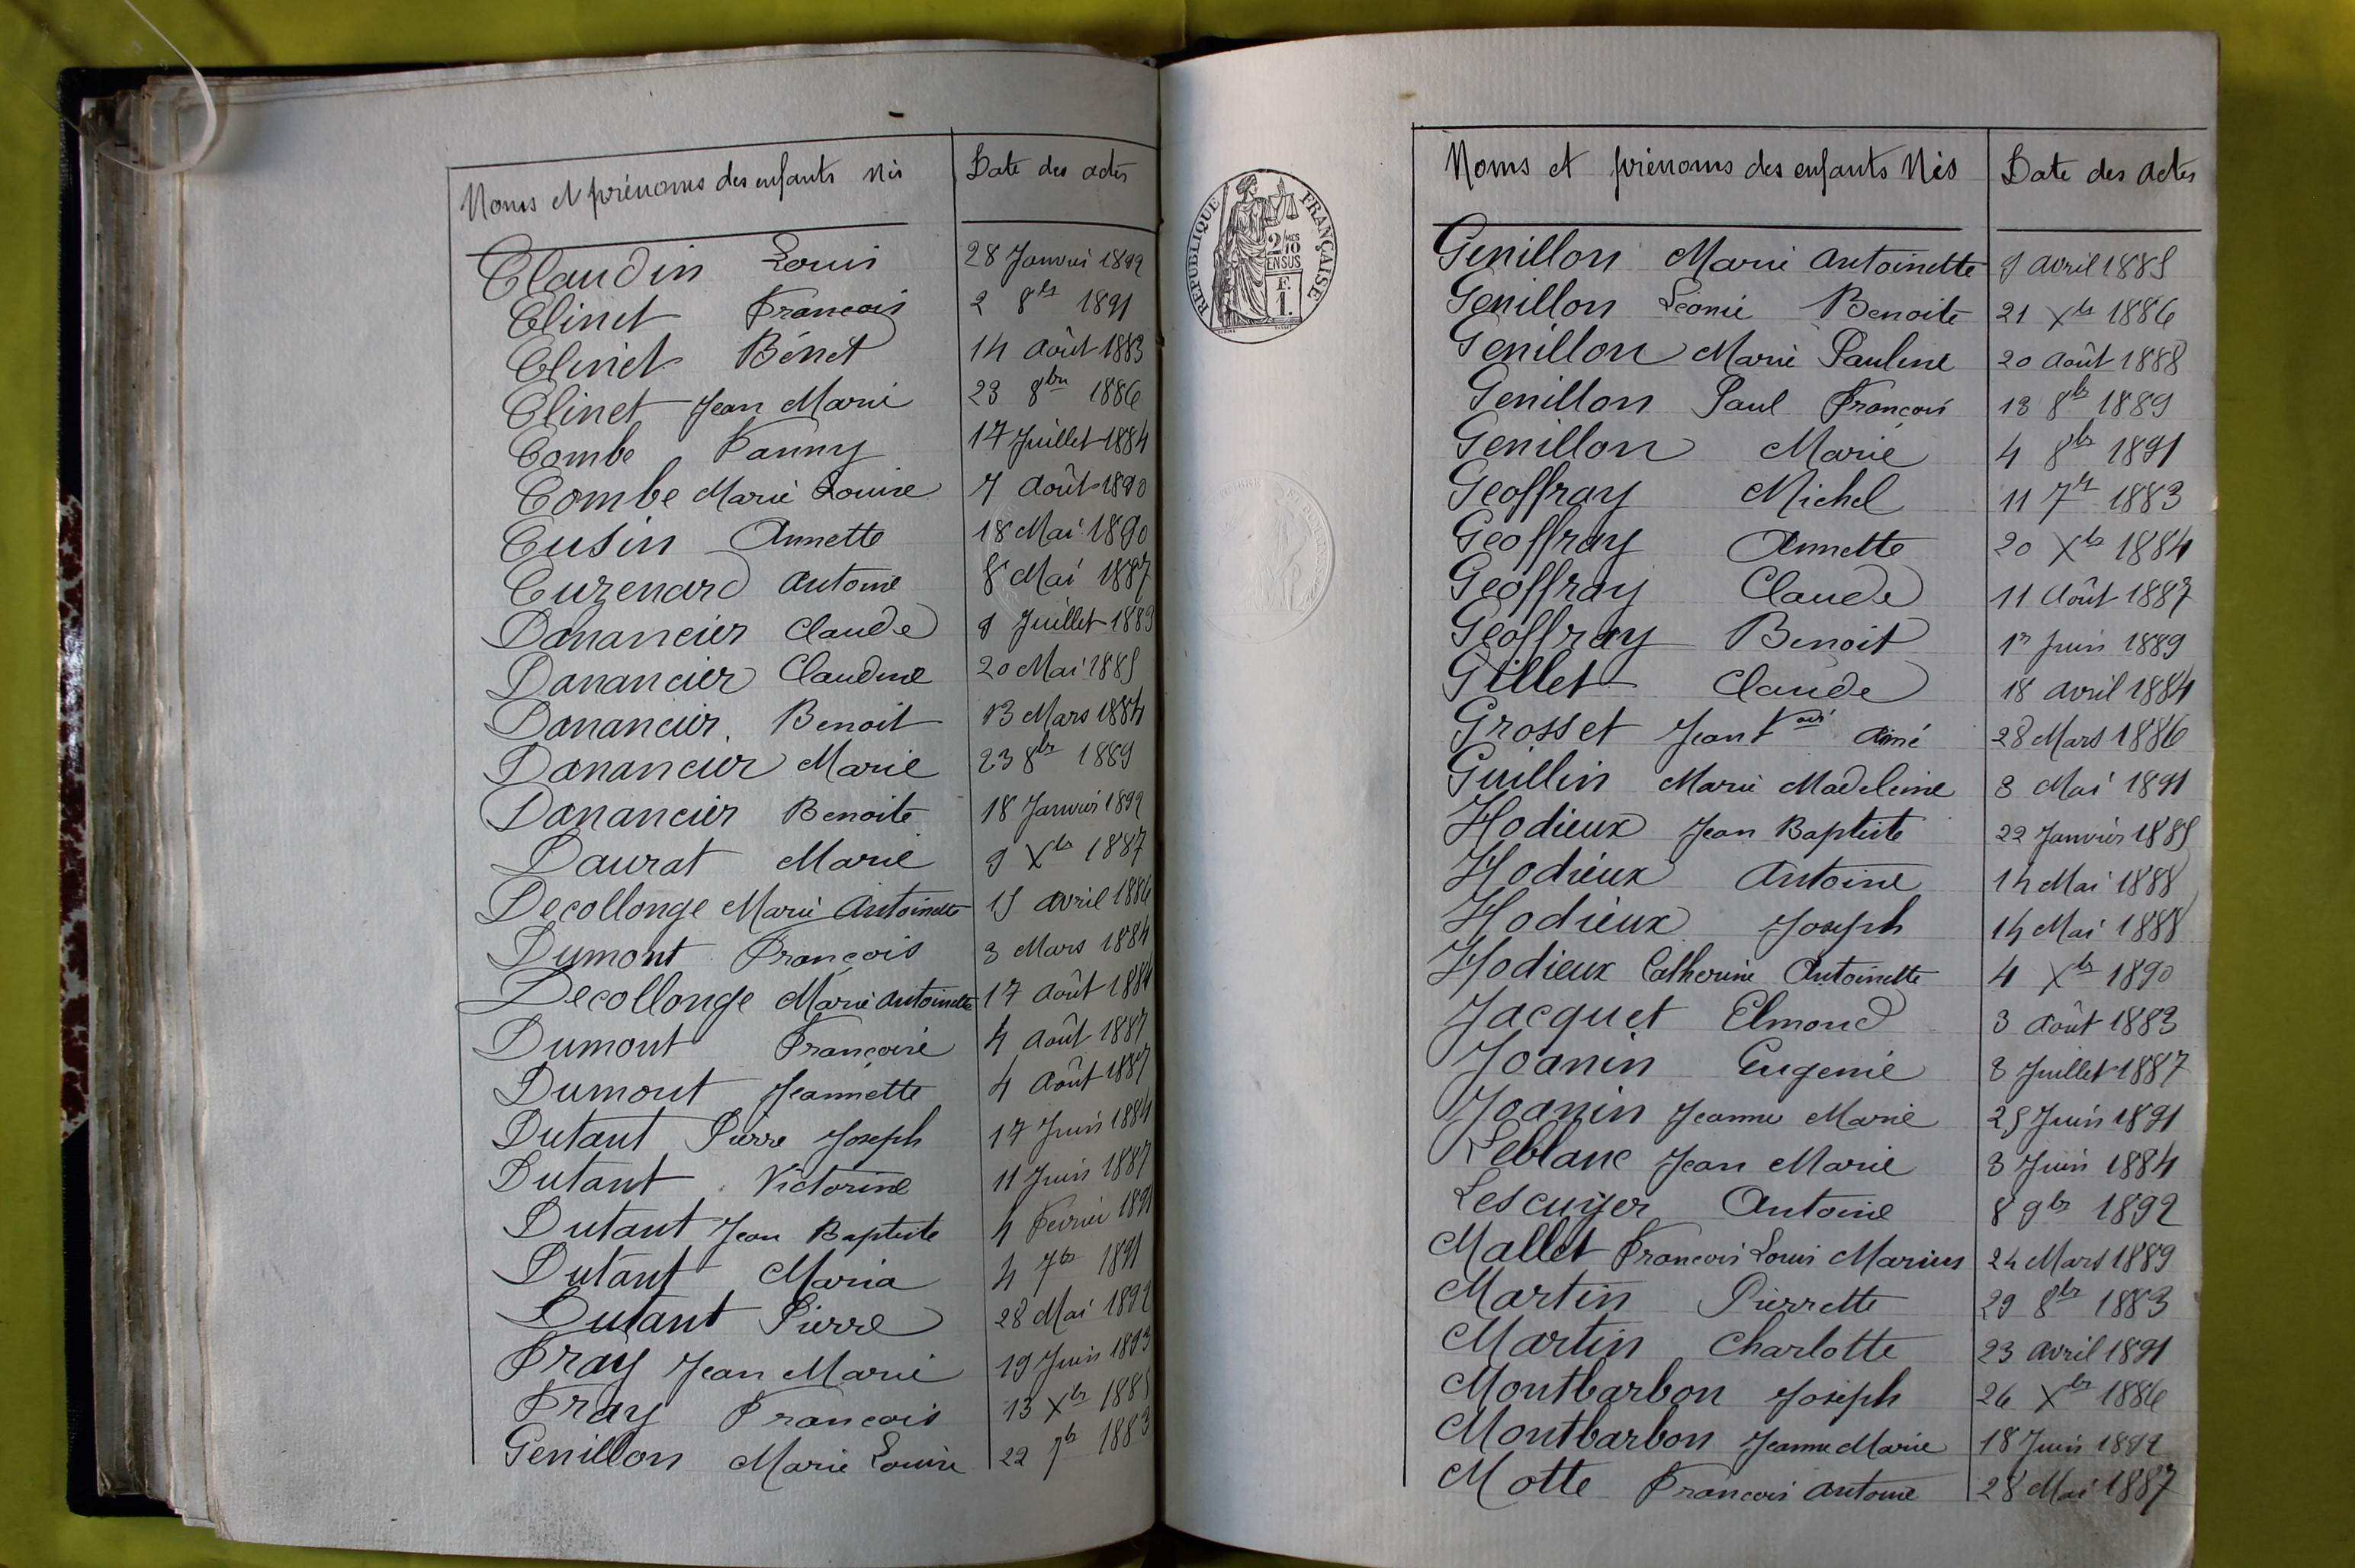 Noms et prénoms des enfants Nés Date des actes
Claudin Louis 28 Janvier 1892
Clinet Francois 2 8bre 1891
Clinet Bénet 14 Août 1883
Clinet Jean Marie 23 8bre 1886
Combe Fanny 17 Juillet 1884
Combe Marie Louise 7 Août 1890
Cusin Annette 18 Mai 1890
Cuzenard Antoine 8 Mai 1887
Danancier Claude 9 Juillet 1883
Danancier Claudine 20 Mai 1885
Danancier Benoit 13 Mars 1884
Danancier Marie 23 8bre 1889
Danancier Benoite 18 Janvier 1892
Daurat Marie 9 Xbre 1887
Decollonge Marie Antoinette 15 Avril 1886
Dumont François 3 Mars 1884
Decollonge Marie Antoinette 17 Août 1884
Dumont Françoise 4 Août 1887
Dumont Jeannette 4 Août 1887
Dutant Pierre Joseph 17 Juin 1884
Dutant Victorine 11 Juin 1887
Dutant Jean Baptiste 4 Février 1891
Dutant Maria 4 7bre 1891
Dutant Pierre 28 Mai 1892
Fray Jean Marie 19 Juin 1893
Fray Francois 13 Xbre 1885
Genillon Marie Louise 22 7bre 1883
RÉPUBLIQUE FRANÇAISE
2/MES
10
EN SUS
F.
1.
Noms et prénoms des enfants Nés Date des actes
Genillon Marie Antoinette 9 Avril 1885
Genillon Léonie Benoite 21 Xbre 1886
Genillon Marie Pauline 20 Août 1888
Genillon Paul François 13 8bre 1889
Genillon Marie 4 8bre 1891
Geoffray Michel 11 7bre 1883
Geoffray Annette 20 Xbre 1884
Geoffray Claude 11 Août 1887
Geoffray Benoit 1er Juin 1889
Gillet Claude 18 Avril 1884
Grosset Jean Aimé 28 Mars 1886
Guillin Marie Madeleine 3 Mai 1891
Hodieux Jean Baptiste 22 Janvier 1885
Hodieux Antoine 14 Mai 1888
Hodieux Joseph 14 Mai 1888
Hodieux Catherine Antoinette 4 Xbre 1890
Jacquet Elmond 3 Août 1883
Joanin Eugenie 3 Juillet 1887
Joanin Jeanne Marie 25 Juin 1891
Leblanc Jean Marie 3 Juin 1884
Lescuyer Antoine 8 9bre 1892
Mallet François Louis Marius 24 Mars 1889
Martin Pierrette 29 8bre 1883
Martin Charlotte 23 Avril 1891
Montbarbon Joseph 26 Xbre 1886
Montbarbon Jeanne Marie 18 Juin 1892
Motte François Antoine 28 Mai 1887